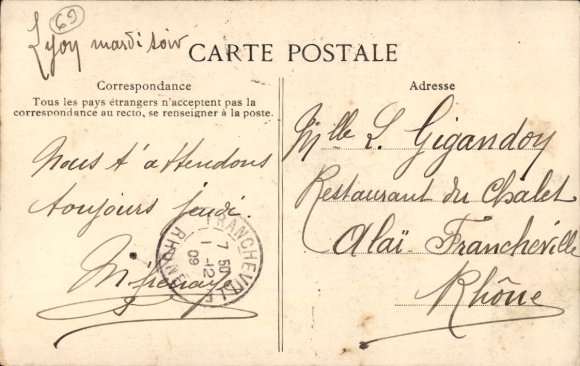 69
Lyon mardi soir
CARTE POSTALE
Correspondance
Tous les pays étrangers n'acceptent pas la
correspondance au recto, se renseigner à la poste.
Nous t'attendons
toujours jeudi.
Adresse
Mlle L. Gigandoy
Restaurant du Chalet
Alaï Francheville
Rhône
FRANCHEVILLE
7 50
1 -12
09
RHONE